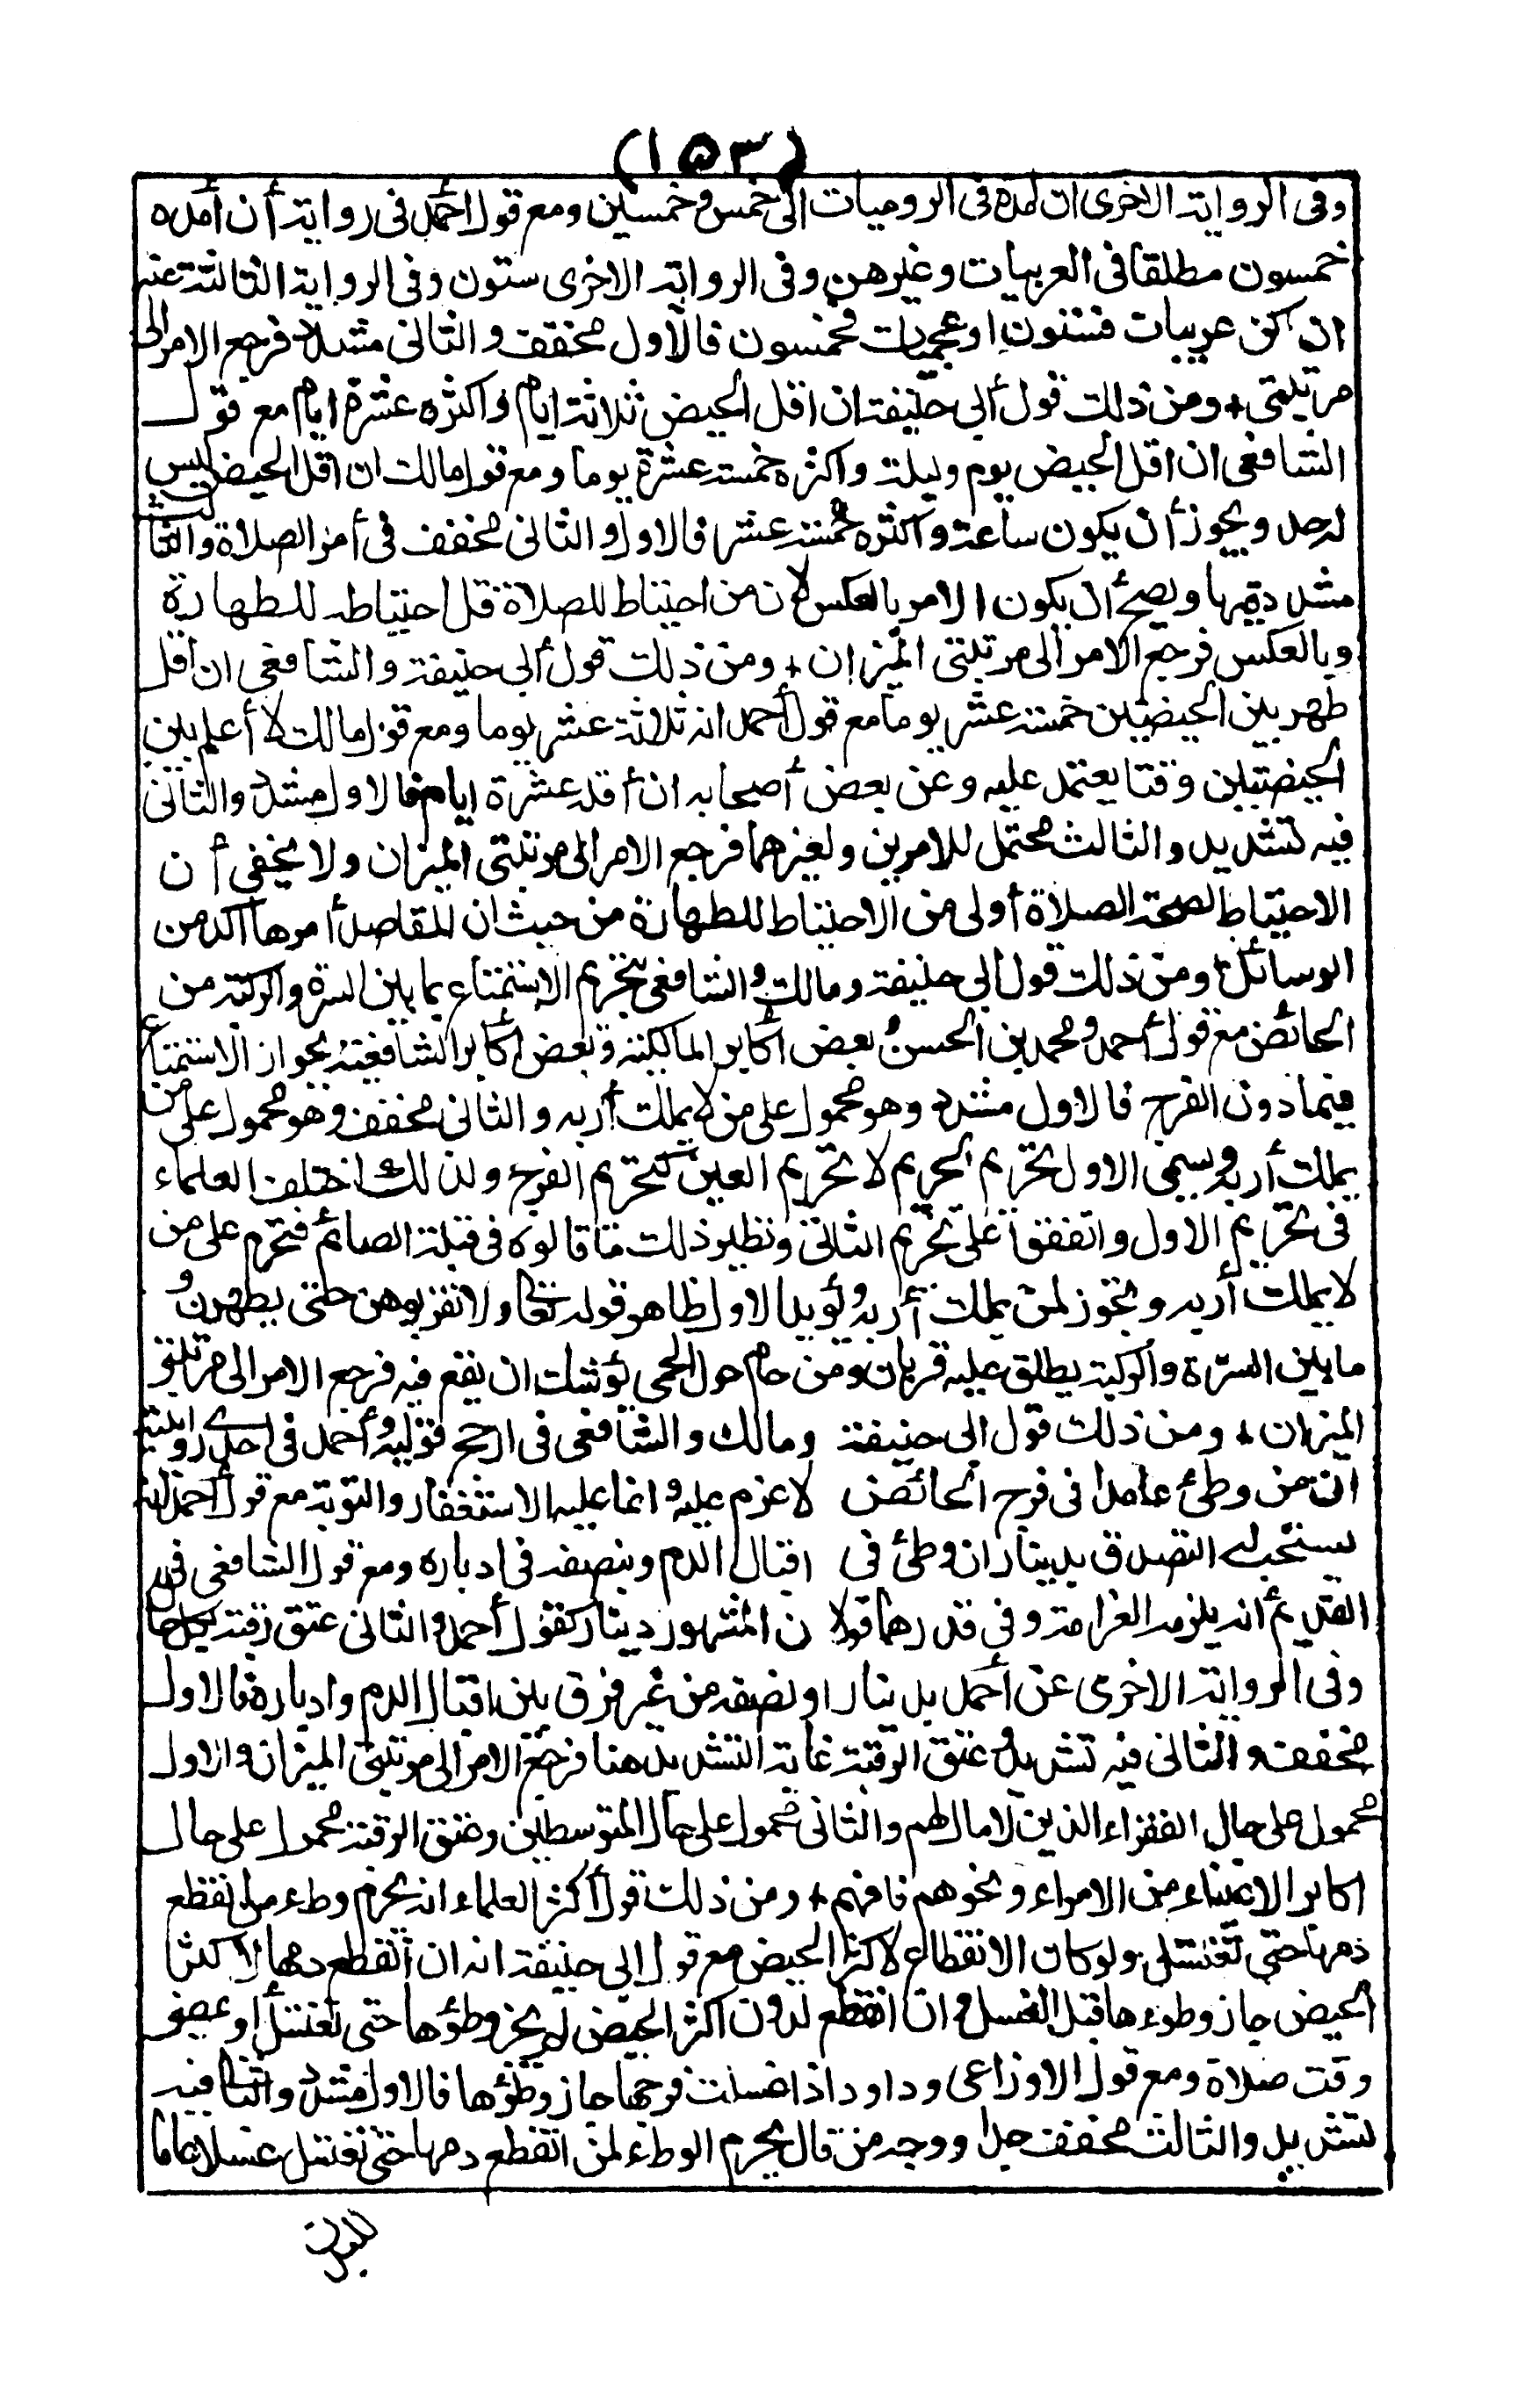 (١٥٣)
وفى الرواية الاخرى ان أمده فى الروميات الى خمس وخمسين ومع قول أحمد فى رواية أن أمده
خمسون مطلقا فى العربيات وغيرهن وفى الرواية الاخرى ستون وفى الرواية الثالثة عنه
ان كن عربيات فستون او عجميات فخمسون فالاول مخفف والثانى مشدد فرجع الامر الى
مرتبتى + ومن ذلك قول أبى حنيفة ان اقل الحيض ثلاثة ايام واكثره عشرة ايام مع قول
الشافعى ان اقل الحيض يوم وليلة واكثره خمسة عشرة يوما ومع قول مالك ان اقل الحيض ليس
له حد ويجوز أن يكون ساعة واكثره خمسة عشر فالاول والثانى مخفف فى أمر الصلاة والثالث
مشدد فيها ويصح أن يكون الامر بالعكس لان من احتاط للصلاة قل احتياطه للطهارة
وبالعكس فرجع الامر الى مرتبتى الميزان + ومن ذلك قول أبى حنيفة والشافعى ان اقل
طهر بين الحيضتين خمسة عشر يوما مع قول أحمد انه ثلاثة عشر يوما ومع قول مالك لا أعلم بين
الحيضتين وقتا يعتمد عليه وعن بعض أصحابه ان أقله عشرة ايام فالاول مشدد والثانى
فيه تشديد والثالث محتمل للامرين ولغيرهما فرجع الامر الى مرتبتى الميزان ولا يخفى أن
الاحتياط لصحة الصلاة أولى من الاحتياط للطهارة من حيث ان المقاصد أمرها آكد من
الوسائل + ومن ذلك قول ابى حنيفة ومالك والشافعى بتحريم الاستمتاع بما بين السرة والركبة من
الحائض مع قول أحمد ومحمد بن الحسن وبعض أكابر المالكية وبعض أكابر الشافعية بجواز الاستمتاع
فيما دون الفرج فالاول مشدد وهو محمول على من لا يملك أربه والثانى مخفف وهو محمول على من
يملك أربه ويسمى الاول تحريم الحريم لا تحريم العين كتحريم الفرج ولذلك اختلف العلماء
فى تحريم الاول واتفقوا على تحريم الثانى ونظير ذلك ما قالوه فى قبلة الصائم فتحرم على من
لا يملك أربه وتجوز لمن يملك أربه ويؤيد الاول ظاهر قوله تعالى ولا تقربوهن حتى يطهرن و
ما بين السرة والركبة يطلق عليه قربان ومن حام حول الحمى يوشك ان يقع فيه فرجع الامر الى مرتبتى
الميزان + ومن ذلك قول ابى حنيفة ومالك والشافعى فى ارجح قوليه وأحمد فى احدى روايتيه
ان من وطئ عامدا فى فرج الحائض لا غرم عليه وانما عليه الاستغفار والتوبة مع قول أحمد انه
يستحب له التصدق بدينار ان وطئ فى اقبال الدم وبنصفه فى ادباره ومع قول الشافعى فى
القديم أنه يلزمه الغرامة وفى قدرها قولان المشهور دينار كقول أحمد والثانى عتق رقبة بكل حال
وفى الرواية الاخرى عن أحمد بدينار او نصفه من غير فرق بين اقبال الدم وادباره فالاول
مخفف والثانى فيه تشديد وعتق الرقبة غاية التشديد هنا فرجع الامر الى مرتبتى الميزان والاول
محمول على حال الفقراء الذين لا مال لهم والثانى محمول على حال المتوسطين وعتق الرقبة محمول على حال
اكابر الاغنياء من الامراء ونحوهم فافهم + ومن ذلك قول أكثر العلماء انه يحرم وطء من انقطع
دمها حتى تغتسل ولو كان الانقطاع لاكثر الحيض مع قول ابى حنيفة انه ان انقطع دمها لاكثر
الحيض جاز وطوءها قبل الغسل وان انقطع لدون اكثر الحيض لم يجز وطؤها حتى تغتسل أو يمضى
وقت صلاة ومع قول الاوزاعى وداود اذا غسلت فرجها جاز وطؤها فالاول مشدد والثانى فيه
تشديد والثالث مخفف جدا ووجه من قال يحرم الوطء لمن انقطع دمها حتى تغتسل غسلا عاما